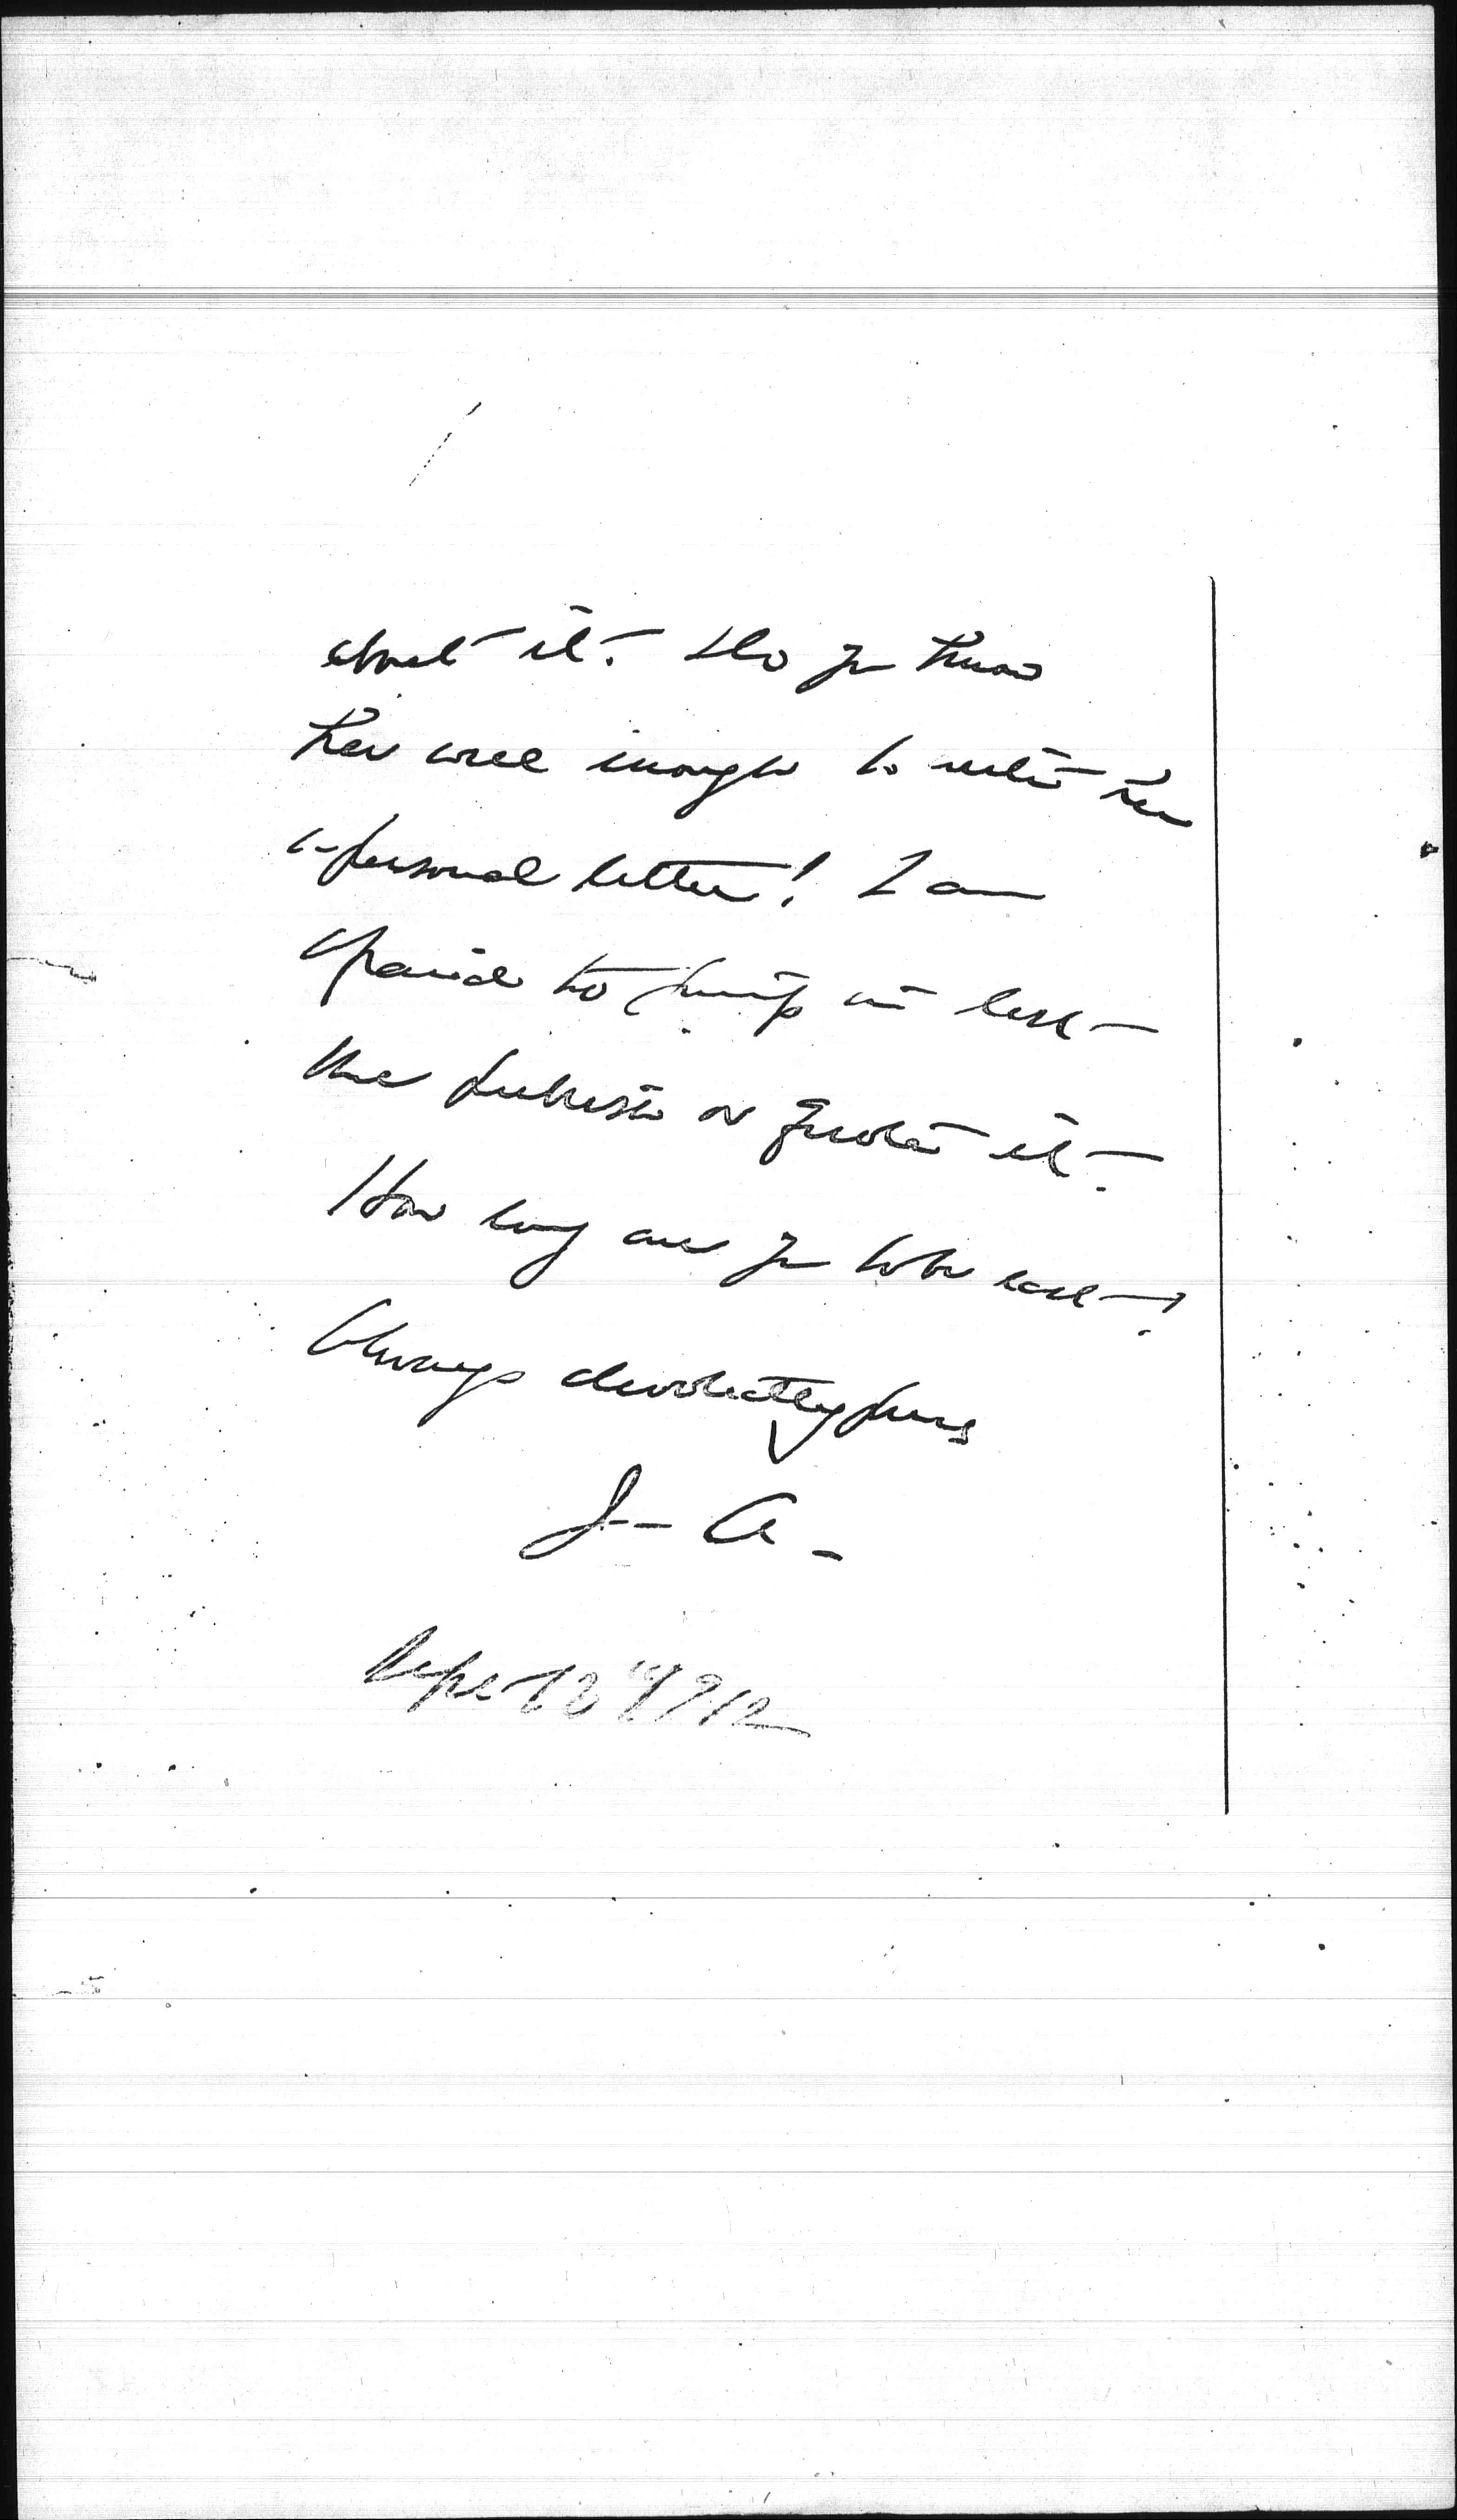 about it. Do you know
her well enough to write her
a personal letter! I am
afraid to jump in lest
she publish or quote it.
How long are you to be east?
Always devotedly yours
J- A-
Sept 13" 1912